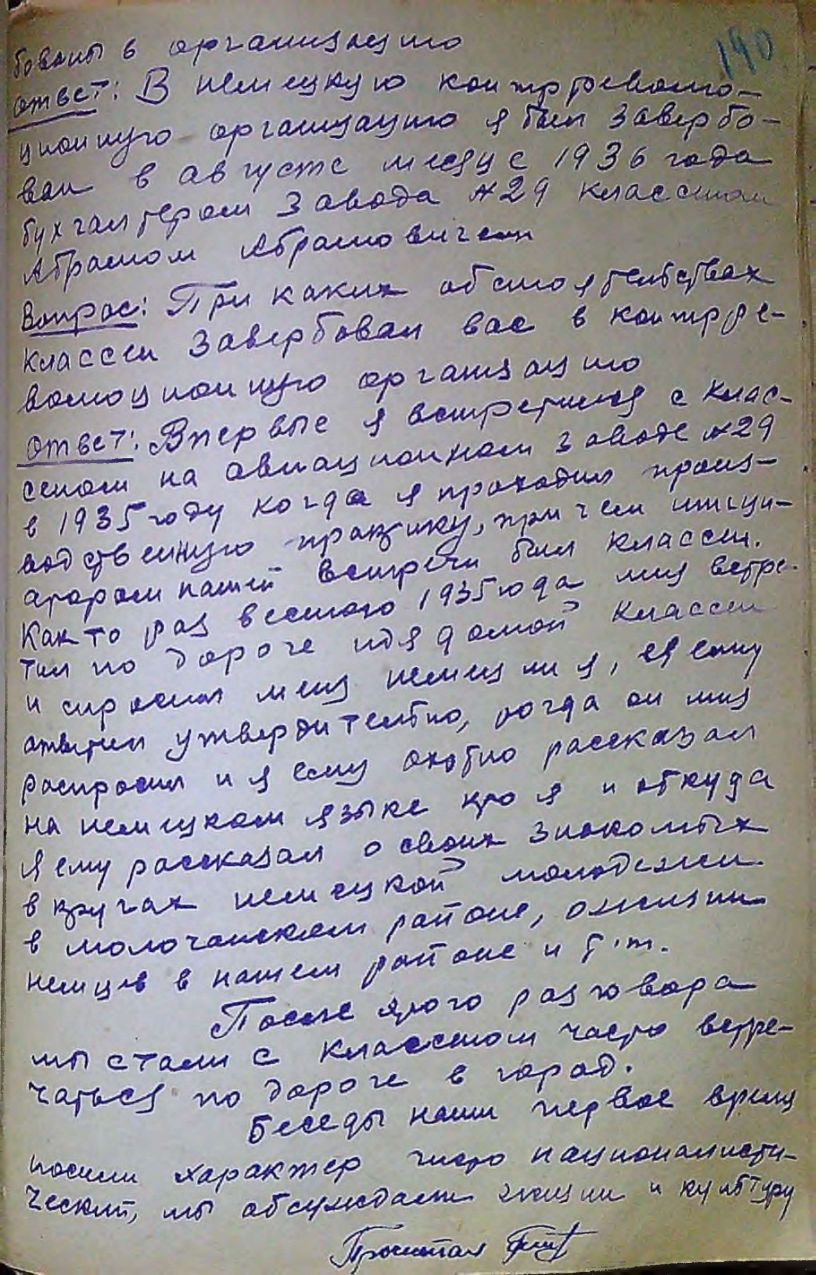 190
бованы в организацию
Ответ: В немецкую контрреволю-
ционную организацию я был завербо-
ван в августе месяце 1936 года
бухгалтером завода №29 Классеном
Абрамом Абрамовичем
Вопрос: При каких обстоятельствах
Классен завербовал вас в контрре-
волюционную организацию
Ответ: Впервые я встретился с Клас-
сеном на авиационном заводе №29
в 1935 году когда я проходил произ-
водственную практику, при чем иници-
атором нашей встречи был Классен.
Как то раз весною 1935 года мня встре-
тил по дороге идя домой Классен
и спросил меня немец ли я, я ему
ответил утвердительно, тогда он мня
распросил и я ему охотно рассказал
на немецком языке кто я и откуда
я ему рассказал о своих знакомых
в кругах немецкой молодежи
в молочанском районе, о жизни
немцев в нашем районе и т.п.
После этого разговора
мы стали с Классеном часто встре-
чаться по дороге в город.
Беседы наши первое время
носили характер чисто националисти-
ческий, мы обсуждали жизни и культуру
Прочитал